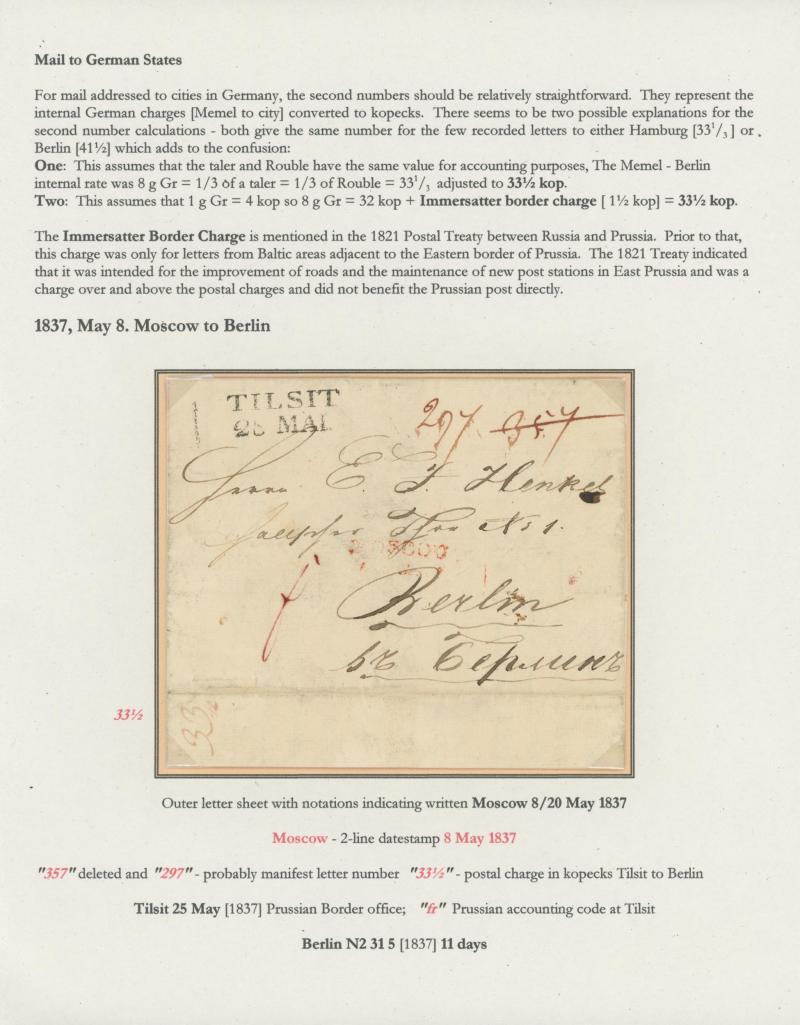 Mail to German States
For mail addressed to cities in Germany, the second numbers should be relatively straightforward. They represent the
internal German charges [Memel to city] converted to kopecks. There seems to be two possible explanations for the
second number calculations - both give the same number for the few recorded letters to either Hamburg [33¹/₃ ] or
Berlin [41½] which adds to the confusion:
One: This assumes that the taler and Rouble have the same value for accounting purposes, The Memel - Berlin
internal rate was 8 g Gr = 1/3 of a taler = 1/3 of Rouble = 33¹/₃ adjusted to 33½ kop.
Two: This assumes that 1 g Gr = 4 kop so 8 g Gr = 32 kop + Immersatter border charge [ 1½ kop] = 33½ kop.
The Immersatter Border Charge is mentioned in the 1821 Postal Treaty between Russia and Prussia. Prior to that,
this charge was only for letters from Baltic areas adjacent to the Eastern border of Prussia. The 1821 Treaty indicated
that it was intended for the improvement of roads and the maintenance of new post stations in East Prussia and was a
charge over and above the postal charges and did not benefit the Prussian post directly.
1837, May 8. Moscow to Berlin
TILSIT
25 MAI
297. 357
Herrn E. F. Henkel
Thor No 1.
Berlin
въ Берлинъ
33½
33½
Outer letter sheet with notations indicating written Moscow 8/20 May 1837
Moscow - 2-line datestamp 8 May 1837
"357" deleted and "297" - probably manifest letter number "33½" - postal charge in kopecks Tilsit to Berlin
Tilsit 25 May [1837] Prussian Border office; "fr" Prussian accounting code at Tilsit
Berlin N2 31 5 [1837] 11 days